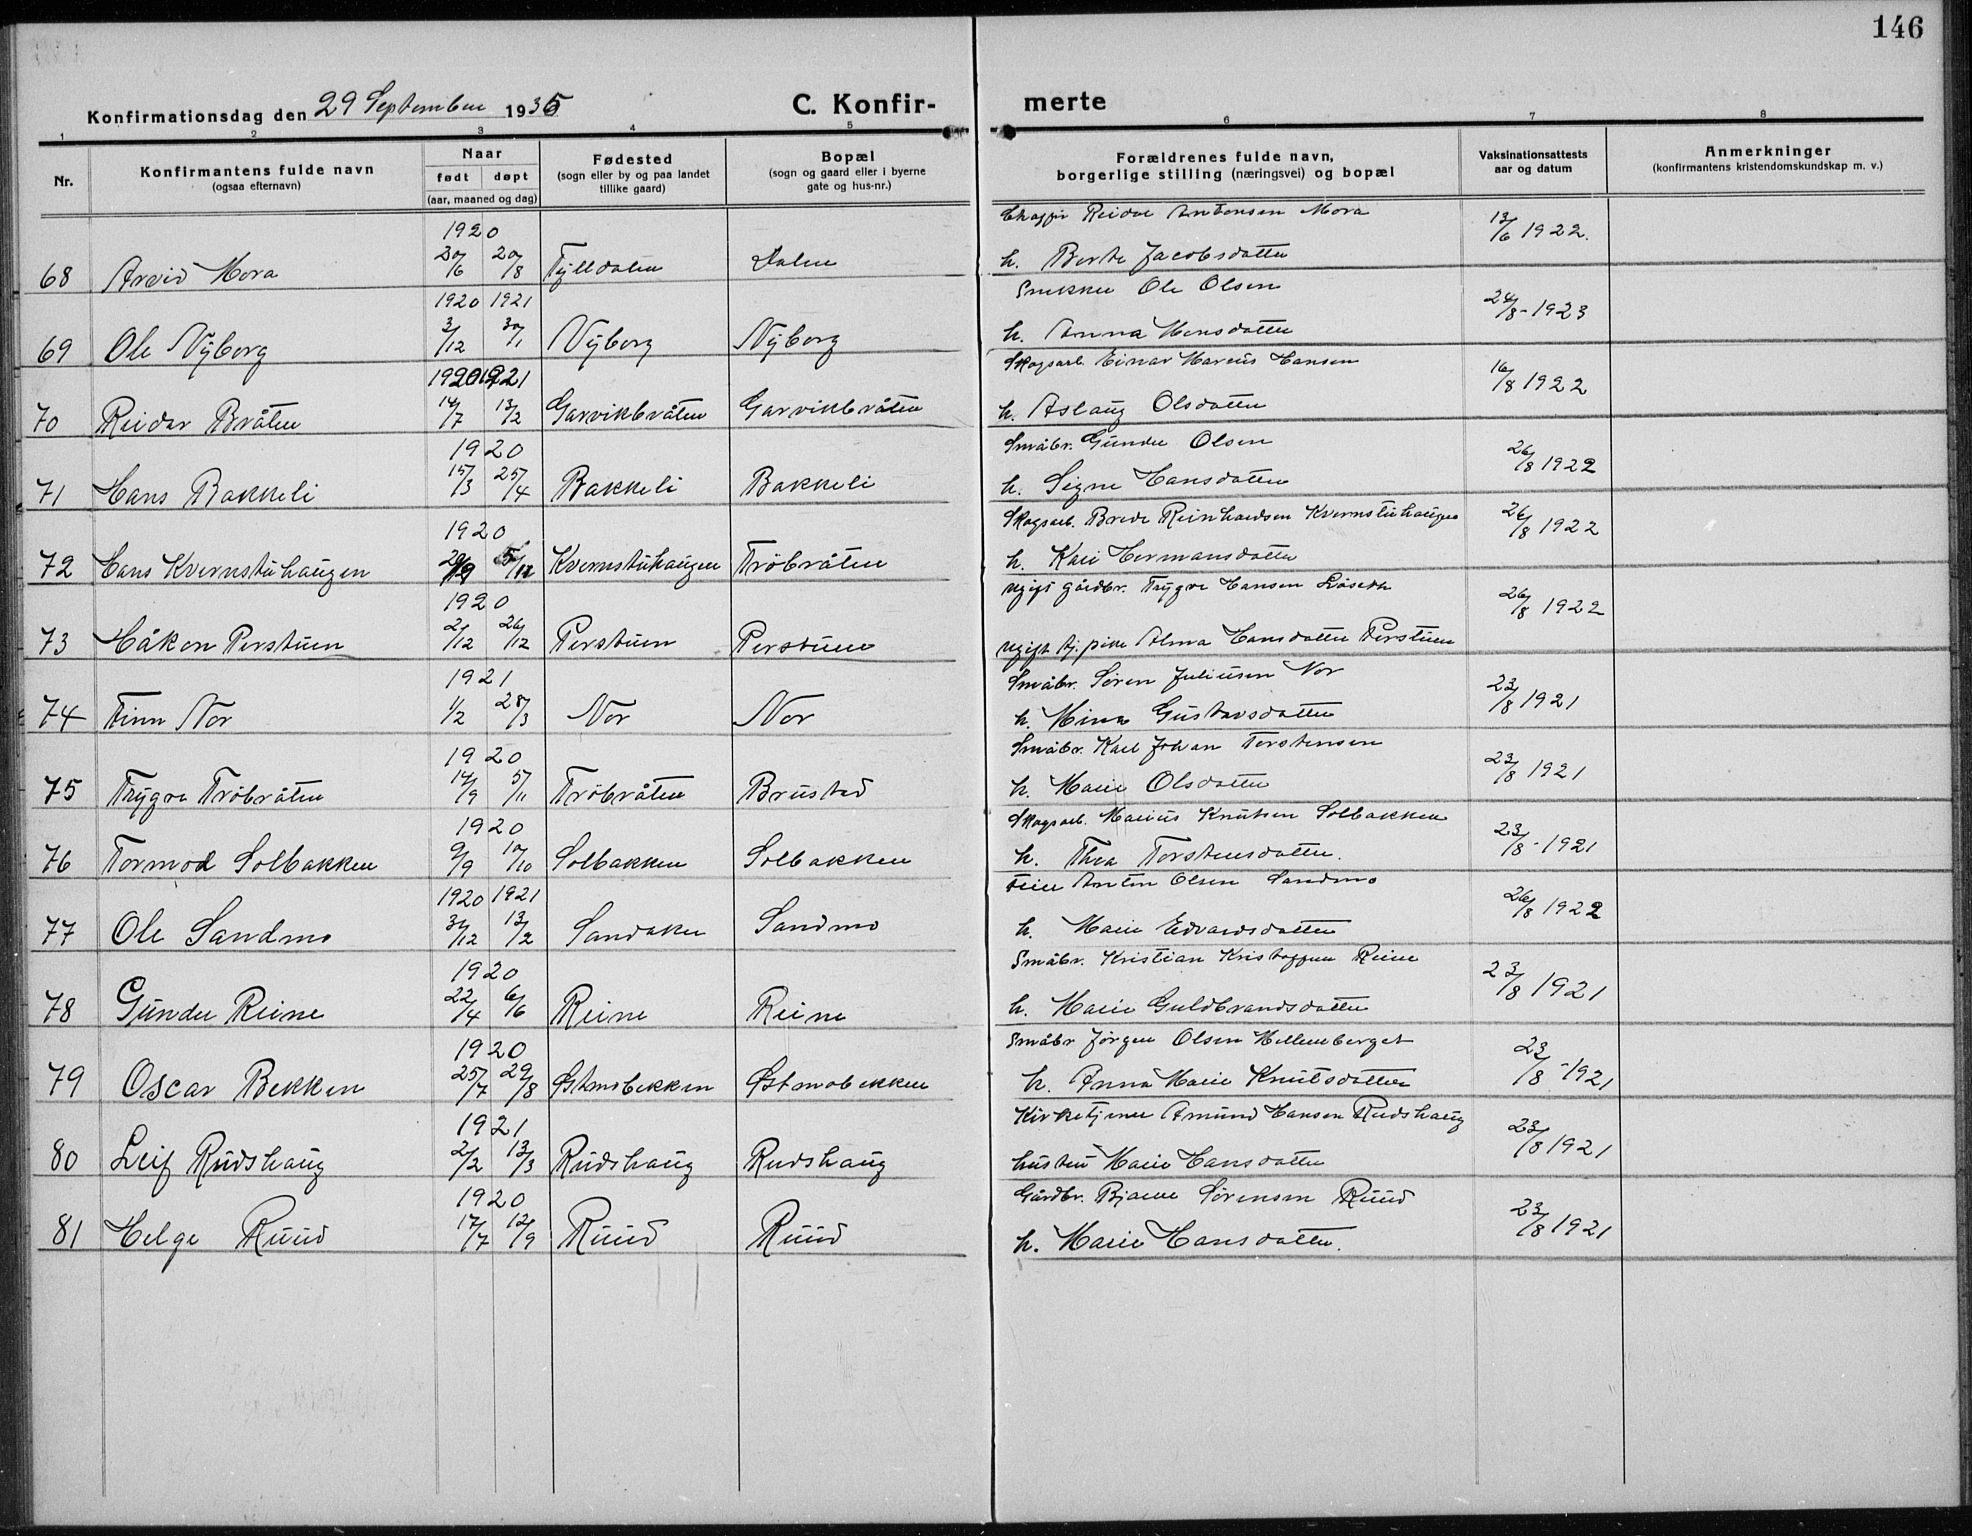 146
Konfirmationsdag den 29 September 1935
C. Konfir- merte
1 2 3 4 5 6 7 8
Nr.
Konfirmantens fulde navn
(ogsaa efternavn)
Naar
født døpt
(aar, maaned og dag)
Fødested
(sogn eller by og paa landet
tillike gaard)
Bopæl
(sogn og gaard eller i byerne
gate og hus-nr.)
Forældrenes fulde navn,
borgerlige stilling (næringsvei) og bopæl
Vaksinationsattests
aar og datum
Anmerkninger
(konfirmantens kristendomskundskap m. v.)
1920 Reidar Antonsen Mora
68 Arvid Mora 20/6 20/8 Tylldalen Dalen h. Berte Jacobsdatter 13/6 1922.
1920 1921 Snekker Ole Olsen
69 Ole Nyborg 3/12 30/1 Nyborg Nyborg h. Anna Monsdatter 24/8-1923
1920 1921 Skogsarb. Einar Marcus Hansen
70 Reidar Bråten 14/7 13/2 Garvikbråten Garvikbråten h. Aslaug Olsdatter 16/8 1922
1920 Småbr. Gunder Olsen
71 Hans Bakkeli 15/3 25/4 Bakkeli Bakkeli h. Signe Hansdatter 26/8 1922
1920 Skogsarb. Brede Reinhardsen Kvernstuhaugen
72 Hans Kvernstuhaugen 5/12 Kvernstuhaugen Trøbråten h. Kari Hermansdatter 26/8 1922
1920 ugift gårdbr. Trygve Hansen Løseth
73 Håkon Perstuen 2/12 26/12 Perstuen Perstuen ugift tj.pike Alma Hansdatter Perstuen 26/8 1922
1921 Småbr. Søren Juliusen Nor
74 Finn Nor 1/2 28/3 Nor Nor h. Mina Gustavsdatter 23/8 1921
1920 Småbr. Karl Johan Torstensen
75 Trygve Trøbråten 14/9 5/11 Trøbråten Brustad h. Marie Olsdatter 23/8 1921
1920 Skogsarb. Marius Knutsen Solbakken
76 Tormod Solbakken 9/9 10/10 Solbakken Solbakken h. Thea Torstensdatter. 23/8-1921
1920 1921 Feier Anton Olsen Sandmo
77 Ole Sandmo 31/12 13/2 Sandaker Sandmo h. Marie Edvardsdatter 26/8 1922
1920 Småbr. Kristian Kristoffersen Reine
78 Gunder Reine 22/4 6/6 Reine Reine h. Marie Guldbrandsdatter 23/8 1921
1920 Småbr Jørgen Olsen Mellemberget
79 Oscar Bekken 25/7 29/8 Østmobekken Østmobekken h. Anna Marie Knutsdatter 23/8-1921
1921 Kirketjener Amund Hansen Rudshaug
80 Leif Rudshaug 2/2 13/3 Rudshaug Rudshaug hustru Marie Hansdatter 23/8 1921
1920 Gårdbr. Bjarne Sørensen Ruud
81 Helge Ruud 17/7 12/9 Ruud Ruud h. Marie Hansdatter. 23/8 1921